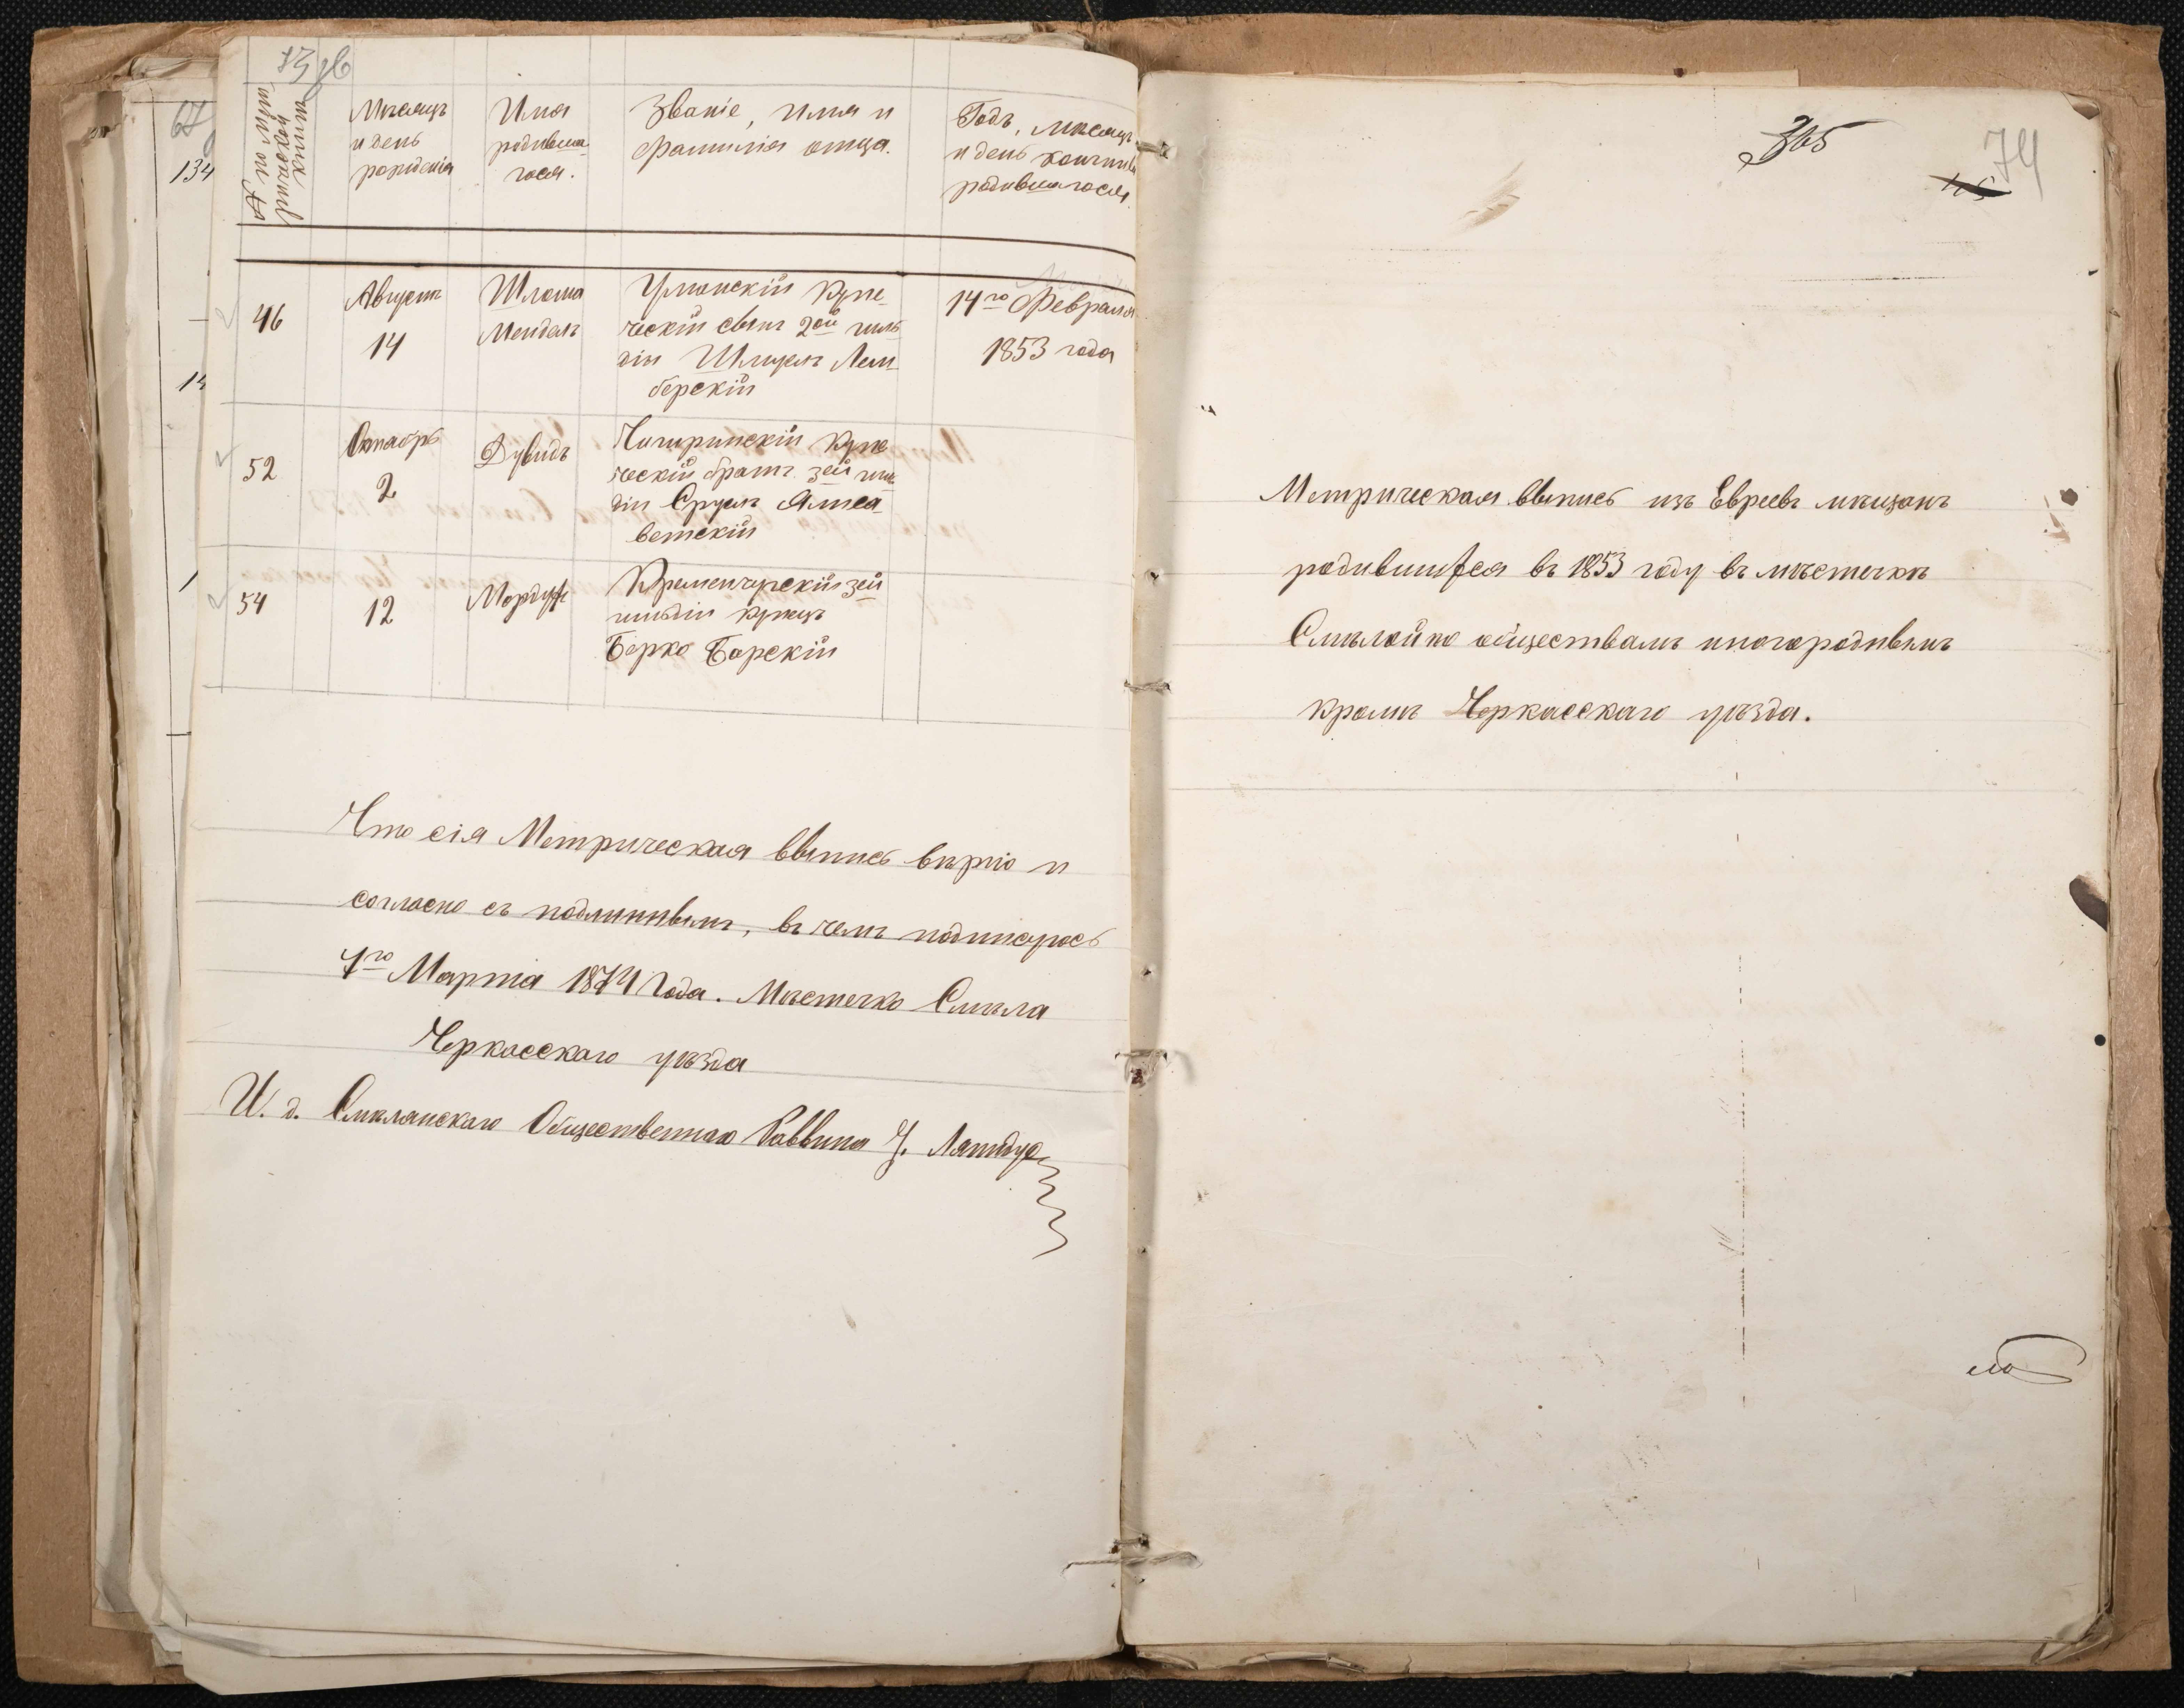 73 об
№ по мет
рической
книги
Мѣсяцъ
и день
рожденія
Имя
родивша
гося.
Званіе, имя и
фамилія отца.
Годъ, мѣсяцъ
и день кончины
родившагося.
46
Августъ
14
Шлома
Мендель
Уманскій Купе
ческій сынъ 2ой гиль
діи Шмуель Лем
берскій
14го Февраля
1853 года
52
Октябрь
2
Дувидъ
Чигиринскій Купе
ческій братъ 3ей гил
діи Сруль Ялиса
ветскій
54
12
Мордух
Кременчугскій 3ей
гильдіи купецъ
Берко Барскій
Что сія Метрическая выпись вѣрно и
согласно съ подлиннымъ, въ чемъ подписуюсь
1го Марта 1874 Года. Мѣстечко Смѣла
Черкасскаго уѣзда
И. д. Смѣлянскаго Общественнаго Раввина
134
14
1
365
74
Метрическая выпись изъ Евреевъ мѣщанъ
родившихся въ 1853 году въ мѣстечкѣ
Смѣлой по обществамъ иногороднымъ
кромѣ Черкасскаго уѣзда.